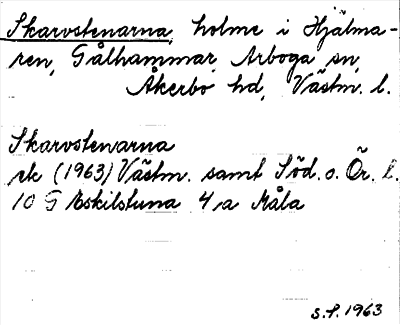 Skarvstenarna, holme i Hjälma-
ren, Gålhammar, Arboga sn,
Åkerbo hd, Västm. l.
Skarvstenarna
rk (1963) Västm. samt Söd. o. Ör. l.
10 G Eskilstuna 4 a Måla
S.S. 1963